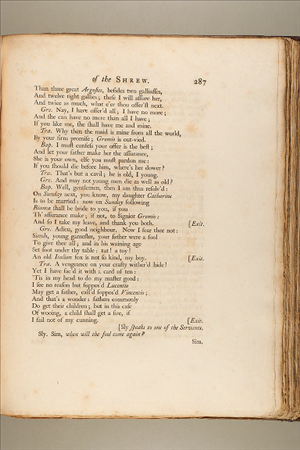 of the SHREW. 287
Than three great Argosies, besides two galliasses,
And twelve tight gallies; these I will assure her,
And twice as much, what e'er thou offer'st next.
Gre. Nay, I have offer'd all; I have no more;
And she can have no more than all I have;
If you like me, she shall have me and mine.
Tra. Why then the maid is mine from all the world,
By your firm promise; Gremio is out-vied.
Bap. I must confess your offer is the best;
And let your father make her the assurance,
She is your own, else you must pardon me:
If you should die before him, where's her dower?
Tra. That's but a cavil; he is old, I young.
Gre. And may not young men die as well as old?
Bap. Well, gentlemen, then I am thus resolv'd:
On Sunday next, you know, my daughter Catharine
Is to be married: now on Sunday following
Bianca shall be bride to you, if you
Th' assurance make; if not, to Signior Gremio:
And so I take my leave, and thank you both. [Exit.
Gre. Adieu, good neighbour. Now I fear thee not:
Sirrah, young gamester, your father were a fool
To give thee all; and in his waining age
Set foot under thy table: tut! a toy!
An old Italian fox is not so kind, my boy. [Exit.
Tra. A vengeance on your crafty wither'd hide!
Yet I have fac'd it with a card of ten:
'Tis in my head to do my master good:
I see no reason but suppos'd Lucentio
May get a father, call'd suppos'd Vincentio;
And that's a wonder: fathers commonly
Do get their children; but in this case
Of wooing, a child shall get a sire, if
I fail not of my cunning. [Exit.
[Sly speaks to one of the Servants.
Sly. Sim, when will the fool come again?
Sim.